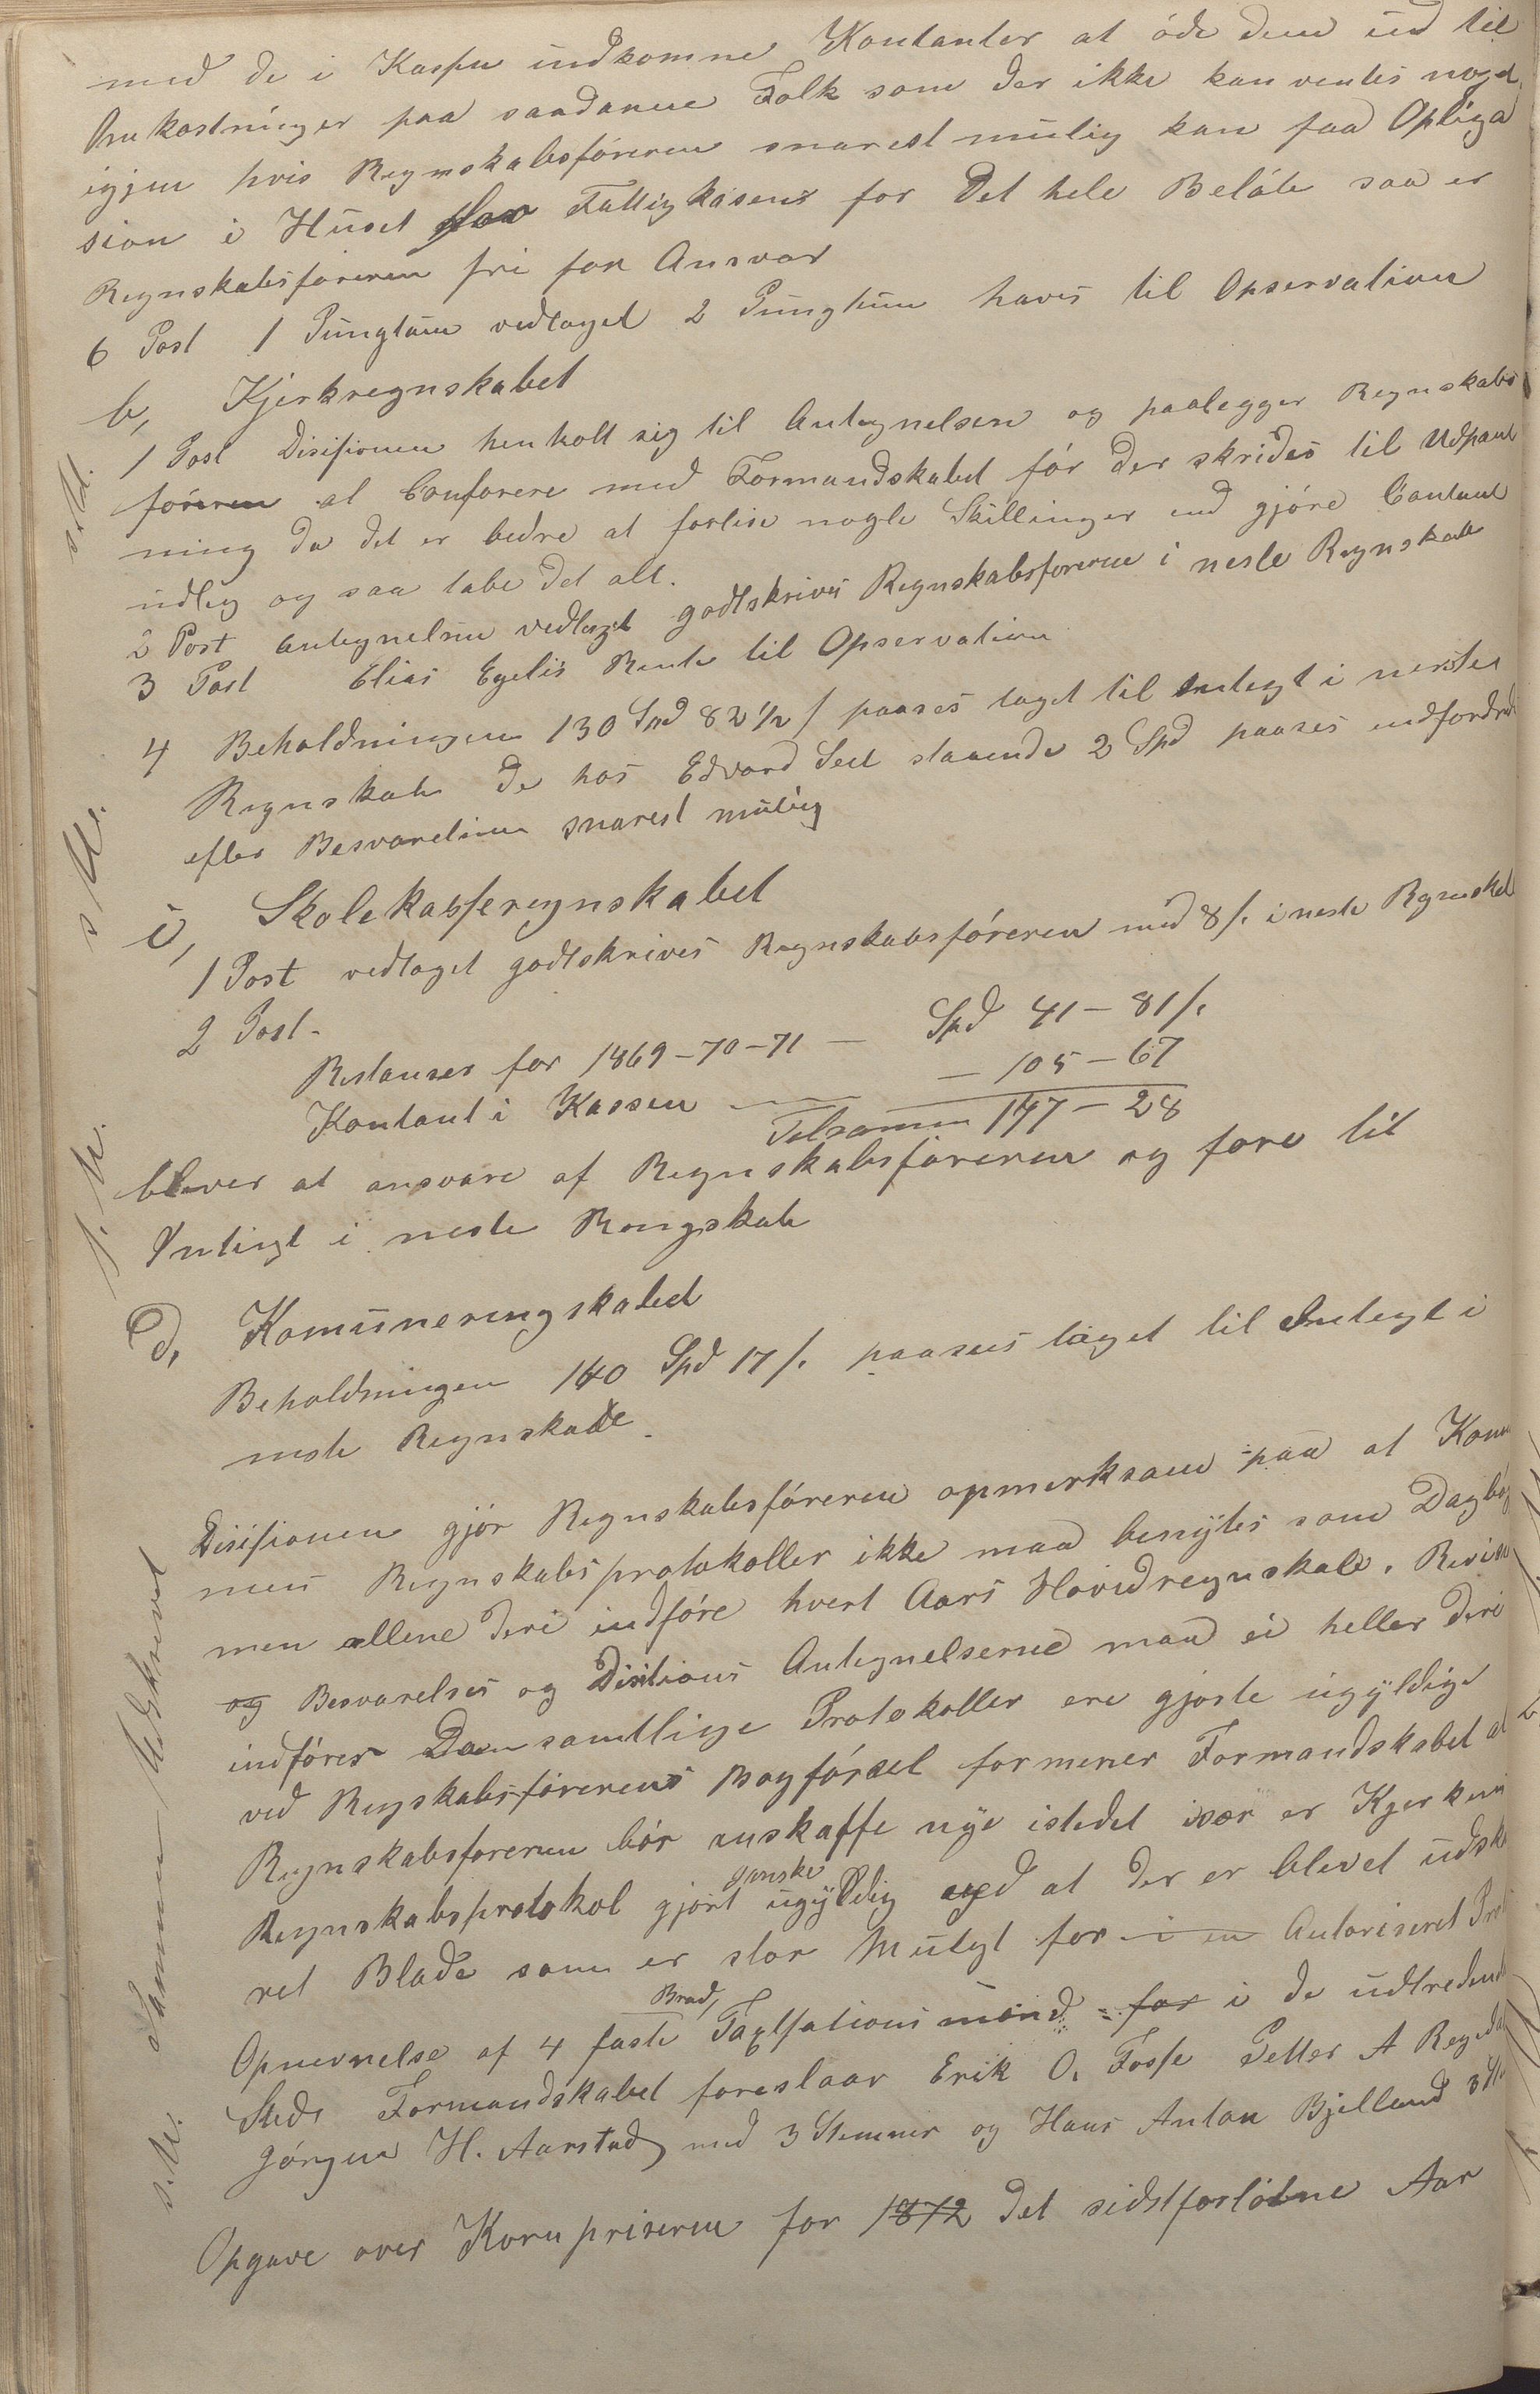 med de i Kassen indkomne Kontanter at öde dem ud til
Omkostninger paa saadanne Folk som der ikke kan ventes noget
igjen hvis Regnskabsföreren snarest mulig kan faa Obliga
sion i Huset for Fattigkasens for det hele Belöb saa er
Regnskabsföreren fri for Ansvar
6 Post 1 Pungtum vedtaget 2 Pungtum haves til Opservation
b, Kjerkregnskabet
1 Post Disisionen henholt sig til Antegnelsen og paalegger Regnskabs
föreren at Conforere med Formandskabet för der skrides til Udpant
ning da det er bedre at forlise nogle Skillinger end gjöre Contant
udleg og saa tabe det alt.
2 Post antegnelsen vedtaget godtskrives Regnskabsföreren i neste Regnskab
3 Post Elias Egelis Rente til Opservation
4 Beholdningen 130 Spd 82 1/2 / paases taget til Indtegt i neste
Regnskab de hos Edvard staaende 2 Spd paases indfordret
efter Besvarelsen snarest mulig
c, Skolekasseregnskabet
1 Post vedtaget godtskrives Regnskabsföreren med 8 /. i neste Regnskab
2 Post.
Restanser for 1869-70-71 — Spd 41 — 81 /.
Kontant i Kassen — — 105 — 67
Tilsamen 147 — 28
blever at ansvare af Regnskabsföreren og före til
Integt i neste Rengskab
d, Komuneringskabet
Beholdningen 140 Spd 17 /. paasees taget til Indtegt i
neste Regnskab.
Disisionen gjör Regnskabsföreren opmerksam paa at Komu
nens Regnskabsprotokoller ikke maa benyttes som Dagbög
men allene deri indföre hvert Aars Hovidregnskab. Revis
og Besvarelses og Disitions Antegnelserne maa ei heller deri
indföres Da samtlige Protokoller ere gjorte ugyldige
ved Regskabsförerens Bogförsel formener Formandskabet at
Regnskabsföreren bör anskaffe nye istedet især er Kjerkens
Regnskabsprotokol gjort ganske ugyldig ved at der er blevet udska
ret Blade som er stor Mulgt for i en Autoriseret Prot
Opnevnelse af 4 faste Brand, Taxsations mænd for i de udtredende
Sted Formandskabet foreslaar Erik O. Fosse Petter A Regedal
Jörgen H. Aarstad med 3 Stemmer og Hans Anton Bjelland 3 St
Opgave over Kornpriserne for 1872 det sidstforlöbne Aar
s. M.
s. M.
s. M.
Samme Udskrevet
s. M.